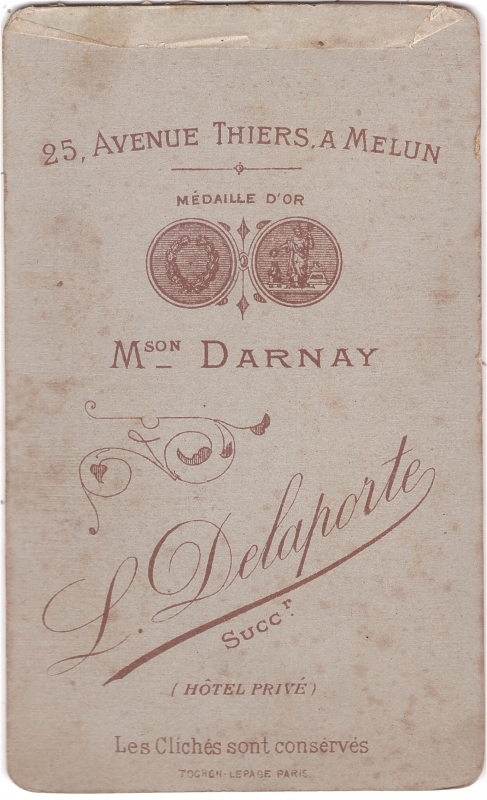 25, AVENUE THIERS, A MELUN
MÉDAILLE D'OR
MSON DARNAY
L. Delaporte
Succr.
(HÔTEL PRIVÉ)
Les Clichés sont conservés
TOCHON-LEPAGE PARIS